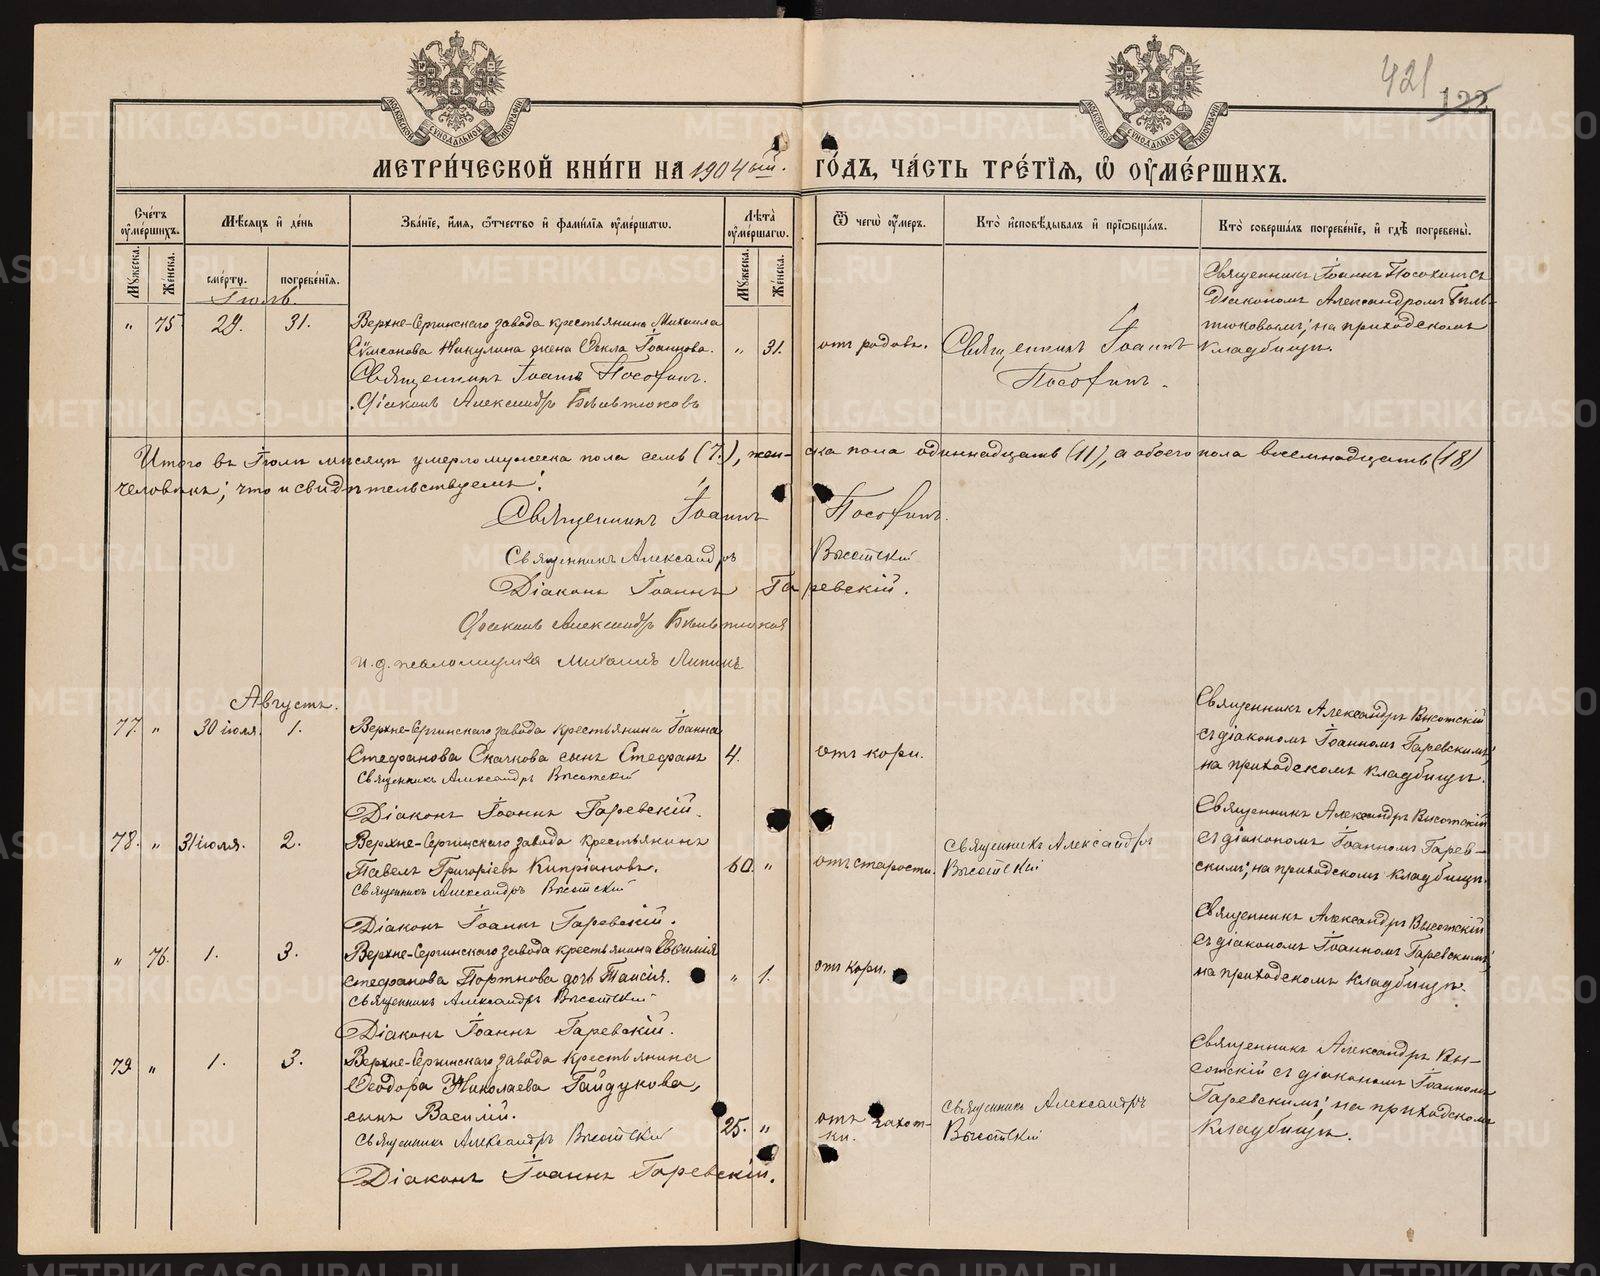 421
122
МЕТРИ́ЧЕСКОЙ КНИ́ГИ НА 1904ый. ГО́ДЪ, ЧА́СТЬ ТРЕ́ТІЯ, Ѡ ОУМЕ́РШИХЪ.
Сче́тъ оуме́ршихъ.
Мѣ́сяцъ и де́нь
Зва́ніе, и́мя, ѻ́тчество и фами́лія оуме́ршагѡ.
Лѣ́та оуме́ршагѡ.
Ѿ чегѡ̀ оу́меръ.
Кто̀ исповѣ́дывалъ и пріѡбща́лъ.
Кто̀ соверша́лъ погребе́ніе, и гдѣ̀ погребены̀.
Му́жеска.
Же́нска.
сме́рти.
погребе́нія.
Му́жеска.
Же́нска.
Іюль.
" 75 29. 31.
Верхне-Сергинскаго завода крестьянина Михаила
Сумсонова Никулина жена Ѳекла Іоаннова. " 31.
Священникъ Іоаннъ Посохинъ.
Діаконъ Александръ Бѣльтюковъ
отъ родовъ.
Священникъ Іоаннъ
Посохинъ.
Священникъ Іоаннъ Посохинъ съ
діакономъ Александромъ Бѣль-
тюковымъ; на приходскомъ
кладбищѣ.
Итого въ Іюлѣ мѣсяцѣ умерло мужеска пола семь (7), жен-ска пола одиннадцать (11), а обоего пола восемнадцать (18)
человѣкъ; что и свидѣтельствуемъ:
Священникъ Іоаннъ Посохинъ.
Священникъ Александръ Высотскій
Діаконъ Іоаннъ Гаревскій.
Діаконъ Александръ Бѣльтюковъ
и. д. псаломщика Михаилъ Липинъ
Августъ.
77. " 30 іюля. 1.
Верхне-Сергинскаго завода крестьянина Іоанна
Стефанова Скачкова сынъ Стефанъ 4.
Священникъ Александръ Высотскій
Діаконъ Іоаннъ Гаревскій.
отъ кори.
Священникъ Александръ Высотскій
съ діакономъ Іоанномъ Гаревскимъ;
на приходскомъ кладбищѣ.
78. " 31 іюля. 2.
Верхне-Сергинскаго завода крестьянинъ
Павелъ Григоріевъ Кипріановъ. 60. "
Священникъ Александръ Высотскій
Діаконъ Іоаннъ Гаревскій.
отъ старости.
Священникъ Александръ
Высотскій
Священникъ Александръ Высотскій
съ діакономъ Іоанномъ Гарев-
скимъ; на приходскомъ кладбищѣ.
" 76. 1. 3.
Верхне-Сергинскаго завода крестьянина Евѳимія
Стефанова Портнова дочь Таисія. " 1.
Священникъ Александръ Высотскій
Діаконъ Іоаннъ Гаревскій.
отъ кори.
Священникъ Александръ Высотскій
съ діакономъ Іоанномъ Гаревскимъ;
на приходскомъ кладбищѣ.
79. " 1. 3.
Верхне-Сергинскаго завода крестьянина
Ѳеодора Николаева Гайдукова,
сынъ Василій. 25. "
Священникъ Александръ Высотскій
Діаконъ Іоаннъ Гаревскій.
отъ чахот-
ки.
Священникъ Александръ
Высотскій
Священникъ Александръ Вы-
сотскій съ діакономъ Іоанномъ
Гаревскимъ; на приходскомъ
кладбищѣ.
METRIKI.GASO-URAL.RU